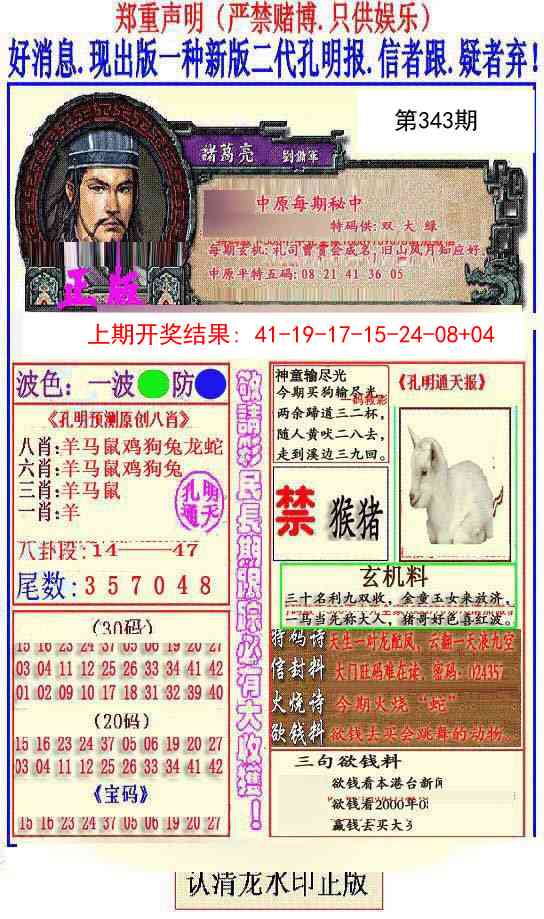 郑重声明（严禁赌博.只供娱乐）
好消息.现出版一种新版二代孔明报.信者跟.疑者弃！
第343期
諸葛亮 劉備軍
中原每期秘中
特码供:双 大 绿
每期玄机:礼司曹贵尝成名,旧山风月知应好.
中原平特五码:08 21 41 36 05
正版
上期开奖结果：41-19-17-15-24-08+04
波色：一波 防
《孔明预测原创八肖》
八肖:羊马鼠鸡狗兔龙蛇
六肖:羊马鼠鸡狗兔
三肖:羊马鼠
一肖:羊
孔明
通天
八卦段:14——47
尾数:357048
(30码)
15 16 23 24 37 05 06 19 20 27
03 04 11 12 25 26 33 34 41 42
01 02 09 10 17 18 31 32 39 40
(20码)
15 16 23 24 37 05 06 19 20 27
03 04 11 12 25 26 33 34 41 42
《宝码》
15 16 23 24 37 05 06 19 20 27
敬請彩民長期跟踪必有大收獲！
神童输尽光
今期买狗输尽光
两余蹄道三二杯，
随人黄吠二八去，
走到溪边三九回。
《孔明通天报》
禁 猴猪
玄机料
三十名利九双收，金童玉女来救济，
一马当先称大人，猪哥好色喜红波。
特码诗 天生一对龙配凤，云翻一天浪九空
信封料 大门旺码难在读，密码：024357
火烧诗 今期火烧“蛇”
欲钱料 欲钱去买会跳舞的动物.
三句欲钱料
欲钱看本港台新闻
欲钱看2000年0
赢钱去买大
认清龙水印正版